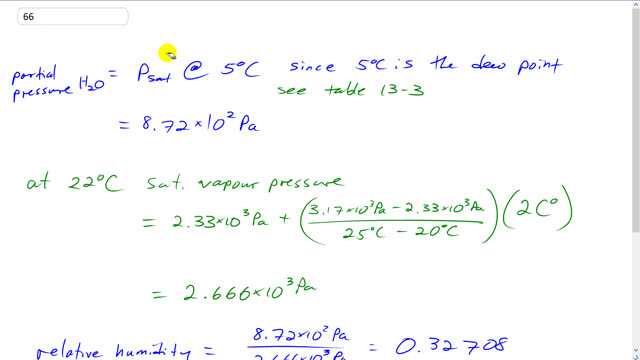 66
partial pressure H₂O = Psat @ 5°C since 5°C is the dew point
see table 13-3
= 8.72×10² Pa
at 22°C sat. vapour pressure
= 2.33×10³ Pa + ( (3.17×10³ Pa − 2.33×10³ Pa) / (25°C − 20°C) ) (2 C°)
= 2.666×10³ Pa
relative humidity = 8.72×10² Pa / 2.666×10³ Pa = 0.32708